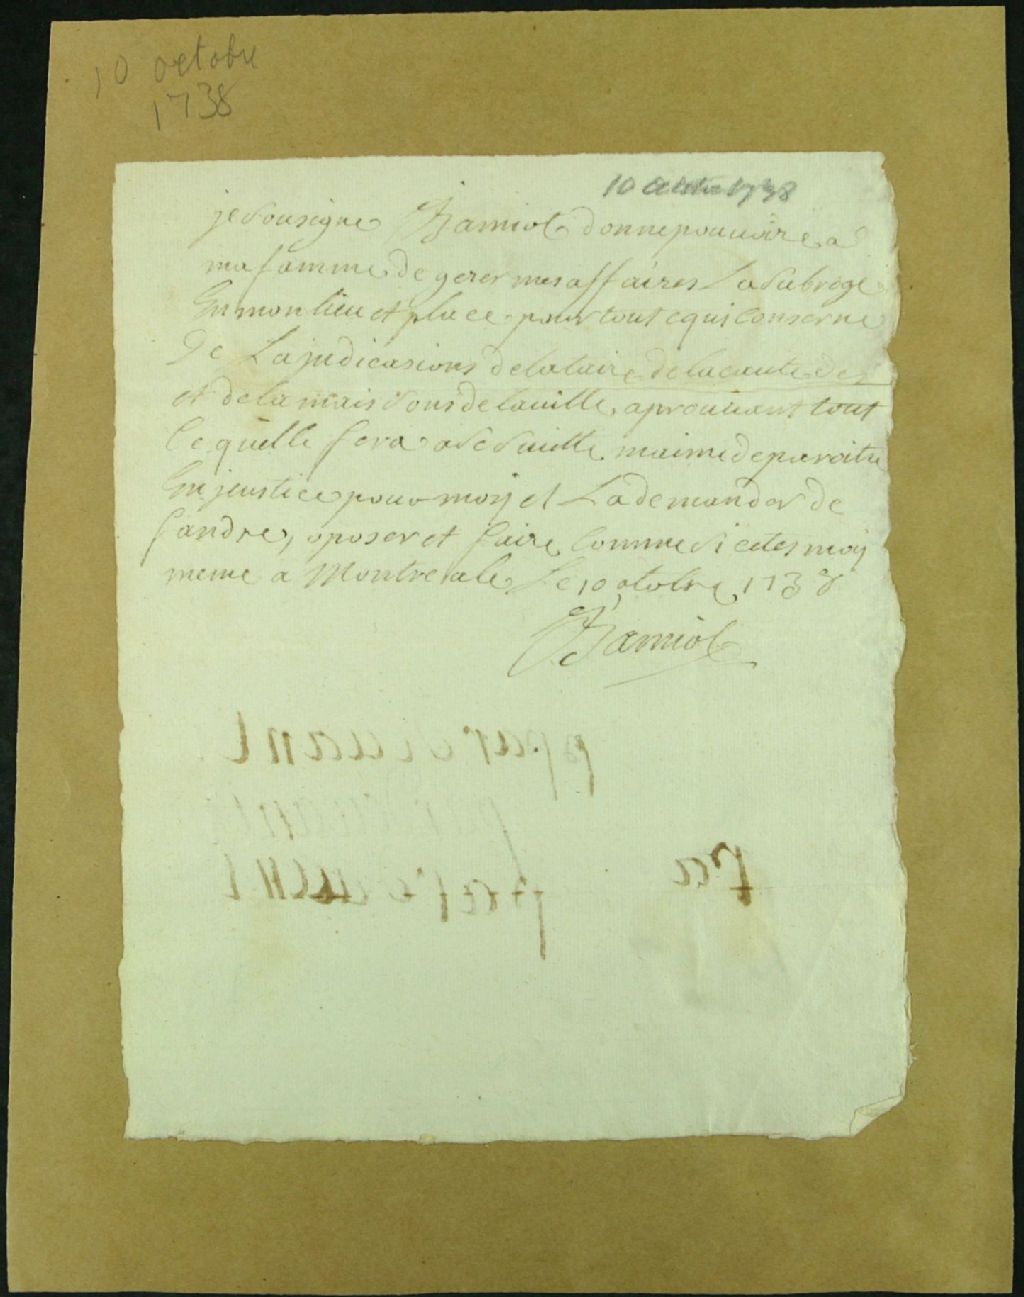 10 octobre
1738
10 octobre 1738
je sousigne Bamiot donne pouuoire a
ma famme de gerer mes affaires La subroge
En mon lieu et place pour tout cequi Conserne
De La judicasions de la taire de la caute des
et de la maisons de la uille, aprouuant tout
Ce quelle fera a se suitte maime de paroitre
En jeustice pour moy et La demander de
fandre, oposer et faire Comme si cetes moy
meme a Montreale Le 10 otobre 1738
Bamiot
par deuant
par deuant
par deuant
pa